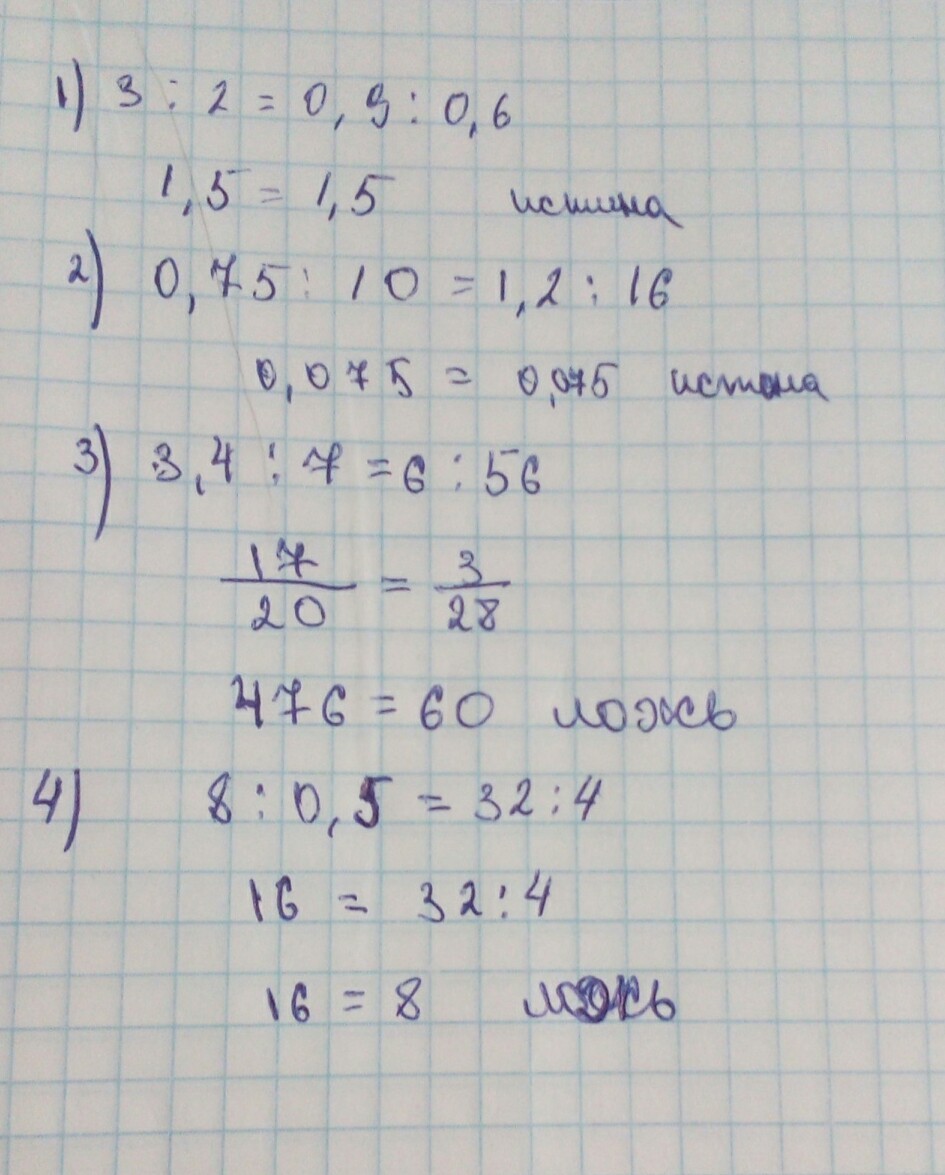 1) 3 : 2 = 0,9 : 0,6
1,5 = 1,5 истина
2) 0,75 : 10 = 1,2 : 16
0,075 = 0,075 истина
3) 3,4 : 7 = 6 : 56
17/20 = 3/28
476 = 60 ложь
4) 8 : 0,5 = 32 : 4
16 = 32 : 4
16 = 8 ложь